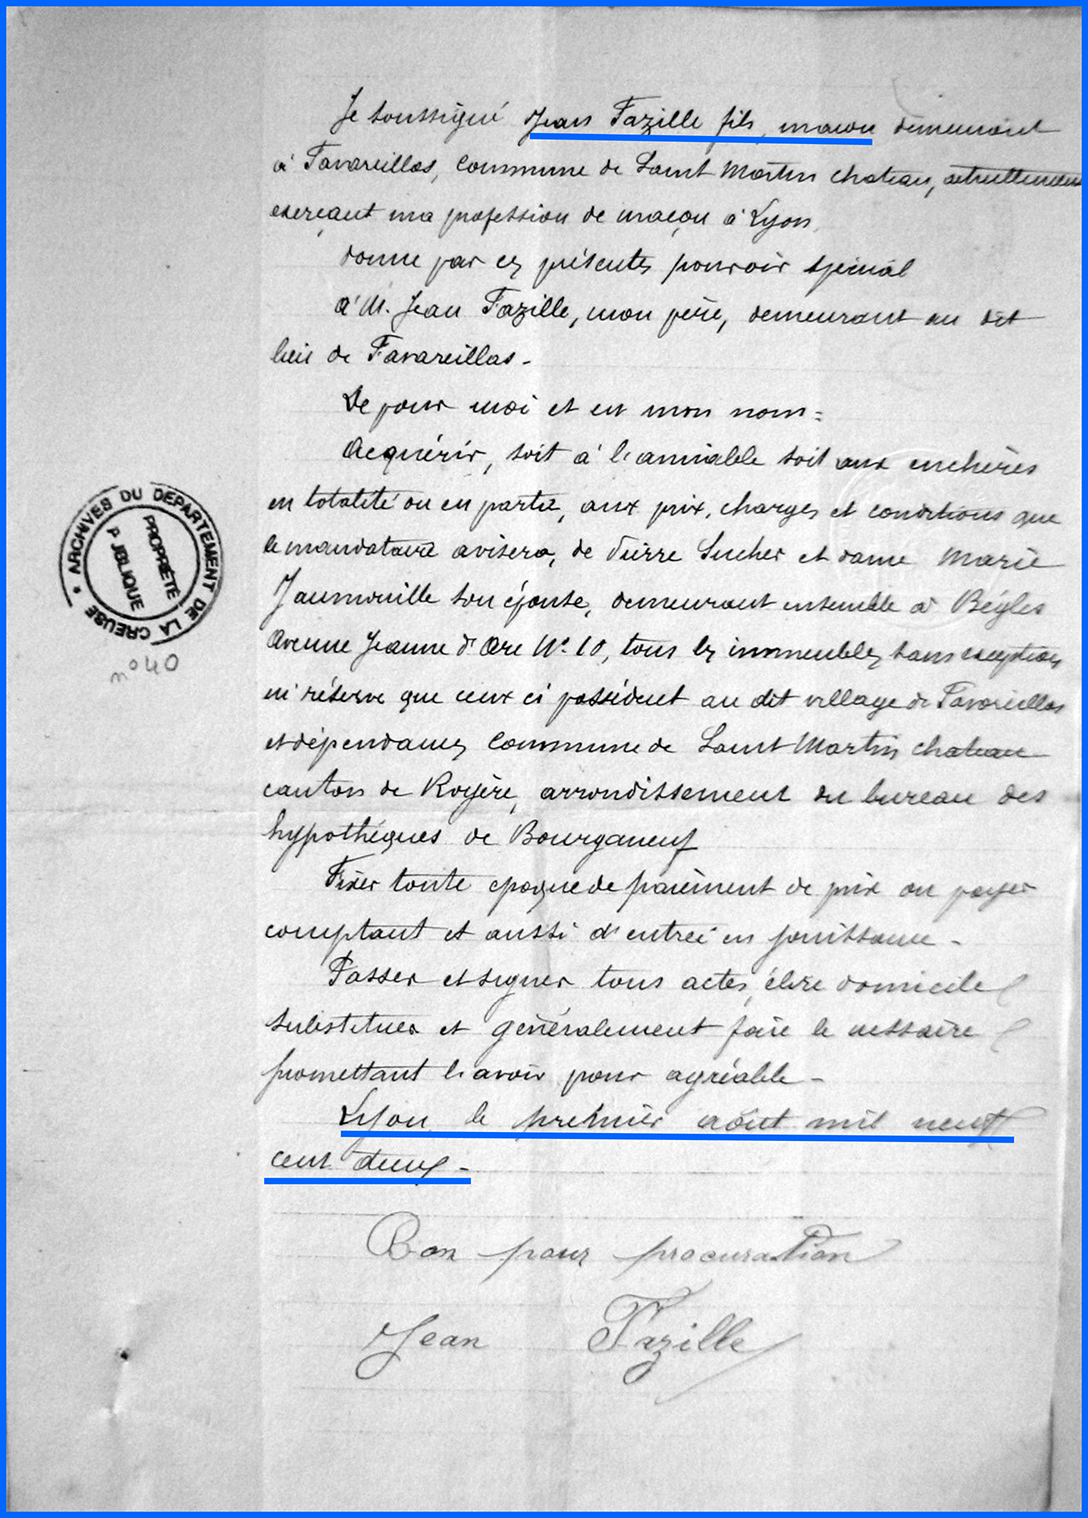 Je soussigné Jean Fazille fils, maçon demeurant
à Favareillas, commune de Saint Martin chateau, actuellement
exerçant ma profession de maçon à Lyon,
donne par ces présentes pouvoir spécial
à M. Jean Fazille, mon père, demeurant au dit
lieu de Favareillas -
De pour moi et en mon nom =
Acquérir, soit à l'amiable soit aux enchères
en totalité ou en partie, aux prix, charges et conditions que
le mandataire avisera, de Pierre Sucher et dame Marie
Jaumouille son épouse, demeurant ensemble à Bègles
Avenue Jeanne d'Arc N° 10, tous les immeubles sans exception
ni réserve que ceux ci possèdent au dit village de Favareillas
et dépendances commune de Saint Martin chateau
canton de Royère, arrondissement du bureau des
hypothèques de Bourganeuf
Fixer toute époque de paiement de prix ou payer
comptant et aussi d'entrée en jouissance -
Passer et signer tous actes, élire domicile
substituer et généralement faire le nessaire
promettant l'avoir pour agréable -
Lyon le premier août mil neuf
cent deux -
Bon pour procuration
Jean Fazille
ARCHIVES DU DEPARTEMENT DE LA CREUSE
PROPRIÉTÉ
PUBLIQUE
n° 40